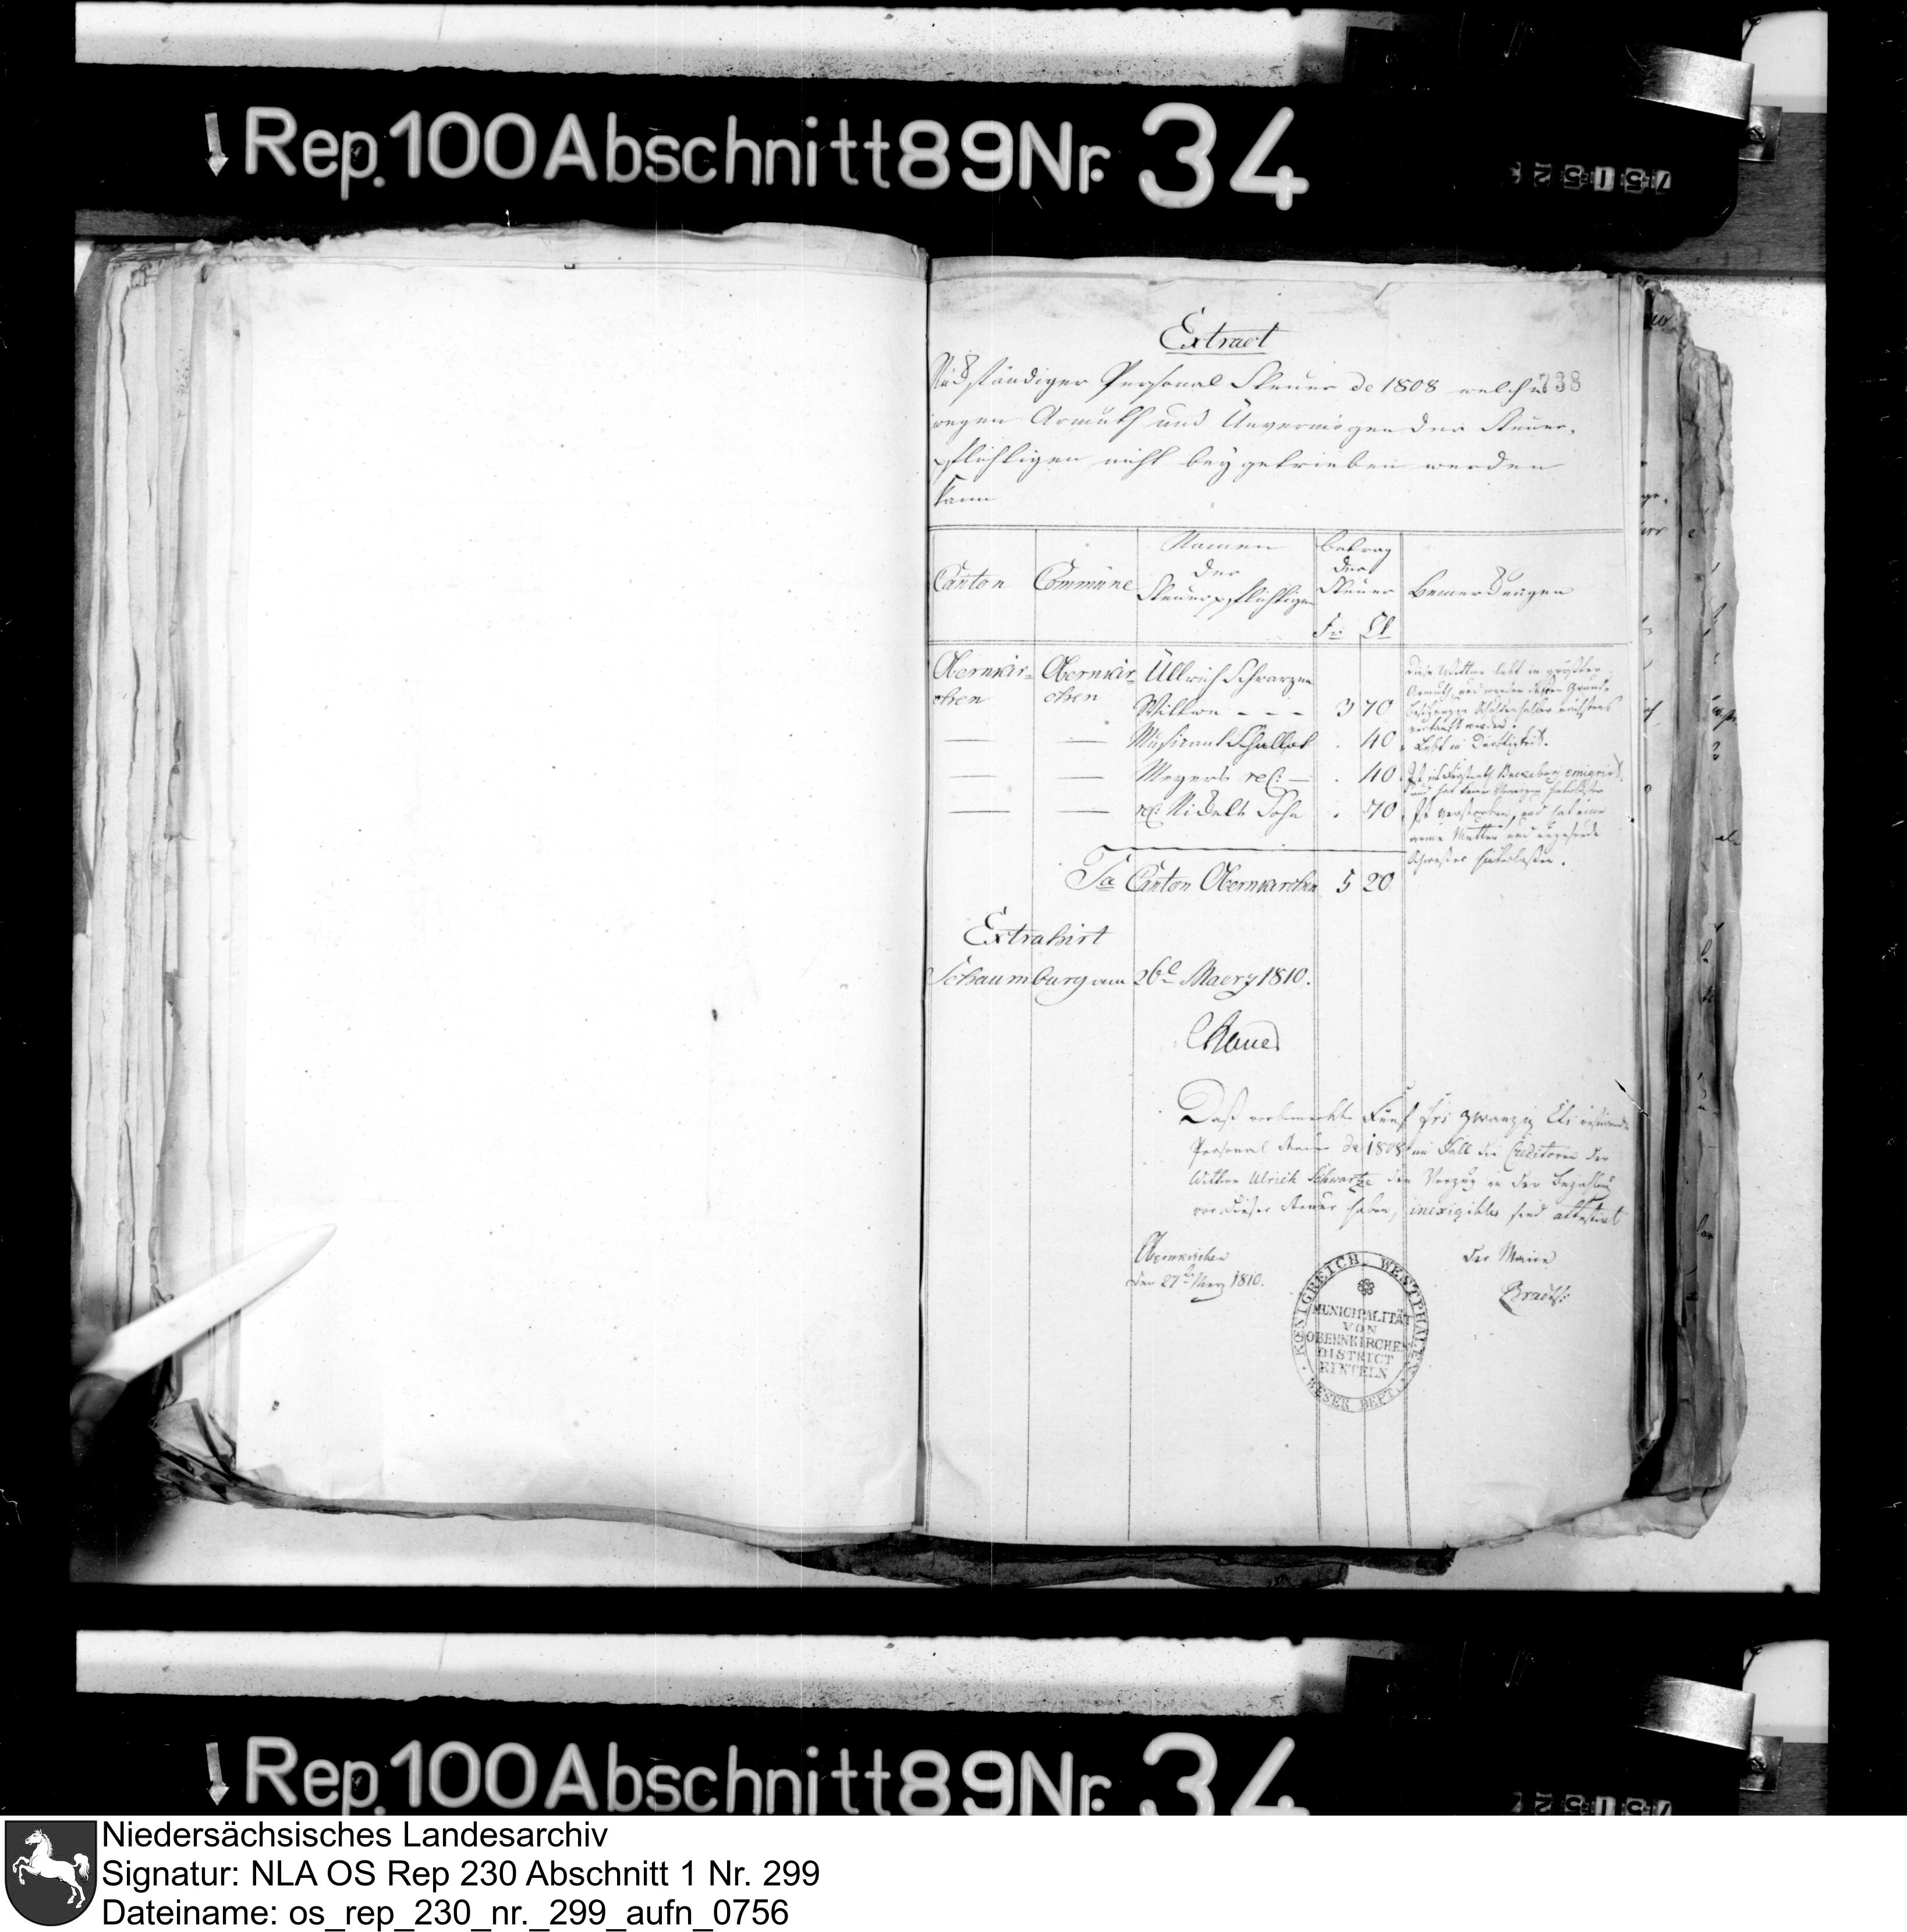 Rep. 100 Abschnitt 89 Nr. 34
Extract
738
Rückständiger Personal Steuer de 1808 welche
wegen Armuth und Unvermögen der Steuer-
pflichtigen nicht beygetrieben werden
kann
Canton
Commüne
Namen
der
Steuerpflichtigen
Betrag
der
Steuer
Fr: Ct
Bemerkungen
Obernkir-
chen
Obernkir-
chen
Üllrich Schwarzen
Wittwe - - - 3 70
Diese Wittwe lebt in größter
Armuth, und werden dessen Grund-
Schulden halber nächstens
verkauft werden.
— — Musicant Schallok . 40
Lebt in Dürftigkeit.
— — Meyers rel: — . 40
Ist ins Bückeburg emigrirt,
und hat kein Vermögen
— — rel: Nickels Sohn . 70
Ist verstorben, und hat eine
arme Mutter und
Schwester hinterlaßen.
Sa Canton Obernkirchen 5 20
Extrahirt
Schaumburg am 26t Maerz 1810.
Daß vorbemerkte Fünf Fr: zwanzig Ct:
Personal Steuer de 1808 im Fall die Creditoren der
Wittwe Ulrich Schwartze den Vorzug in der Bezahlung
vor dieser Steuer haben, inexigibles sind attestirt
Obernkirchen
den 27t Merz 1810.
Der Maire
KÖNIGREICH WESTPHALEN
MUNICIPALITÄT
VON
OBERNKIRCHEN
DISTRICT
RINTELN
WESER DEPT.
Rep. 100 Abschnitt 89 Nr. 34
Niedersächsisches Landesarchiv
Signatur: NLA OS Rep 230 Abschnitt 1 Nr. 299
Dateiname: os_rep_230_nr._299_aufn_0756